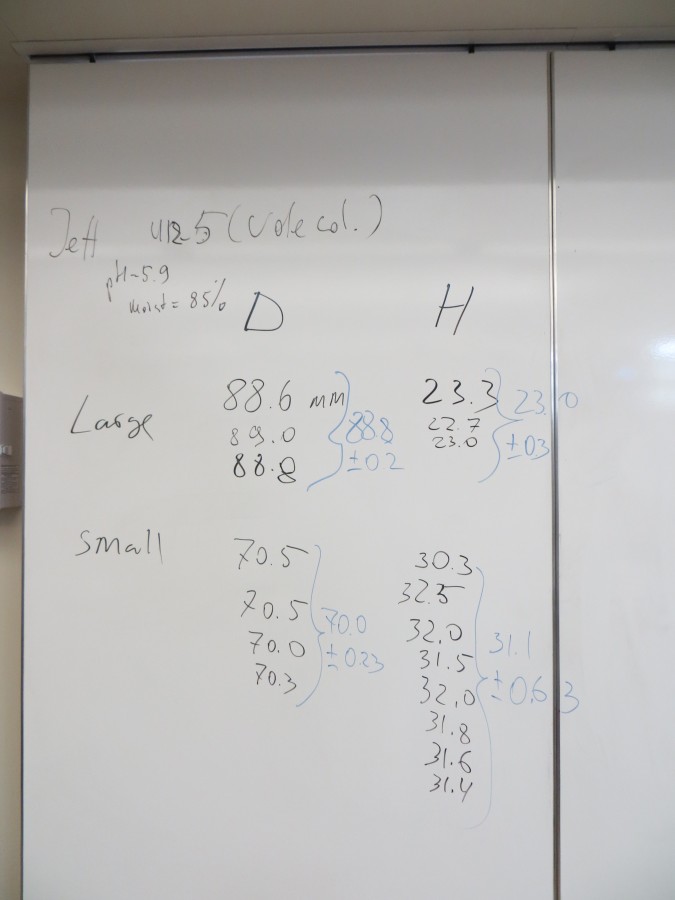 Jeff 4125 (Vole col.)
pH~5.9
moist = 85%
D H
Large 88.6 mm 23.3
89.0 22.7
88.8 23.0
88.8 ±0.2
23.0 ±03
Small 70.5 30.3
70.5 32.5
70.0 32.0
70.3 31.5
32.0
31.8
31.6
31.4
70.0 ±0.23
31.1 ±0.63